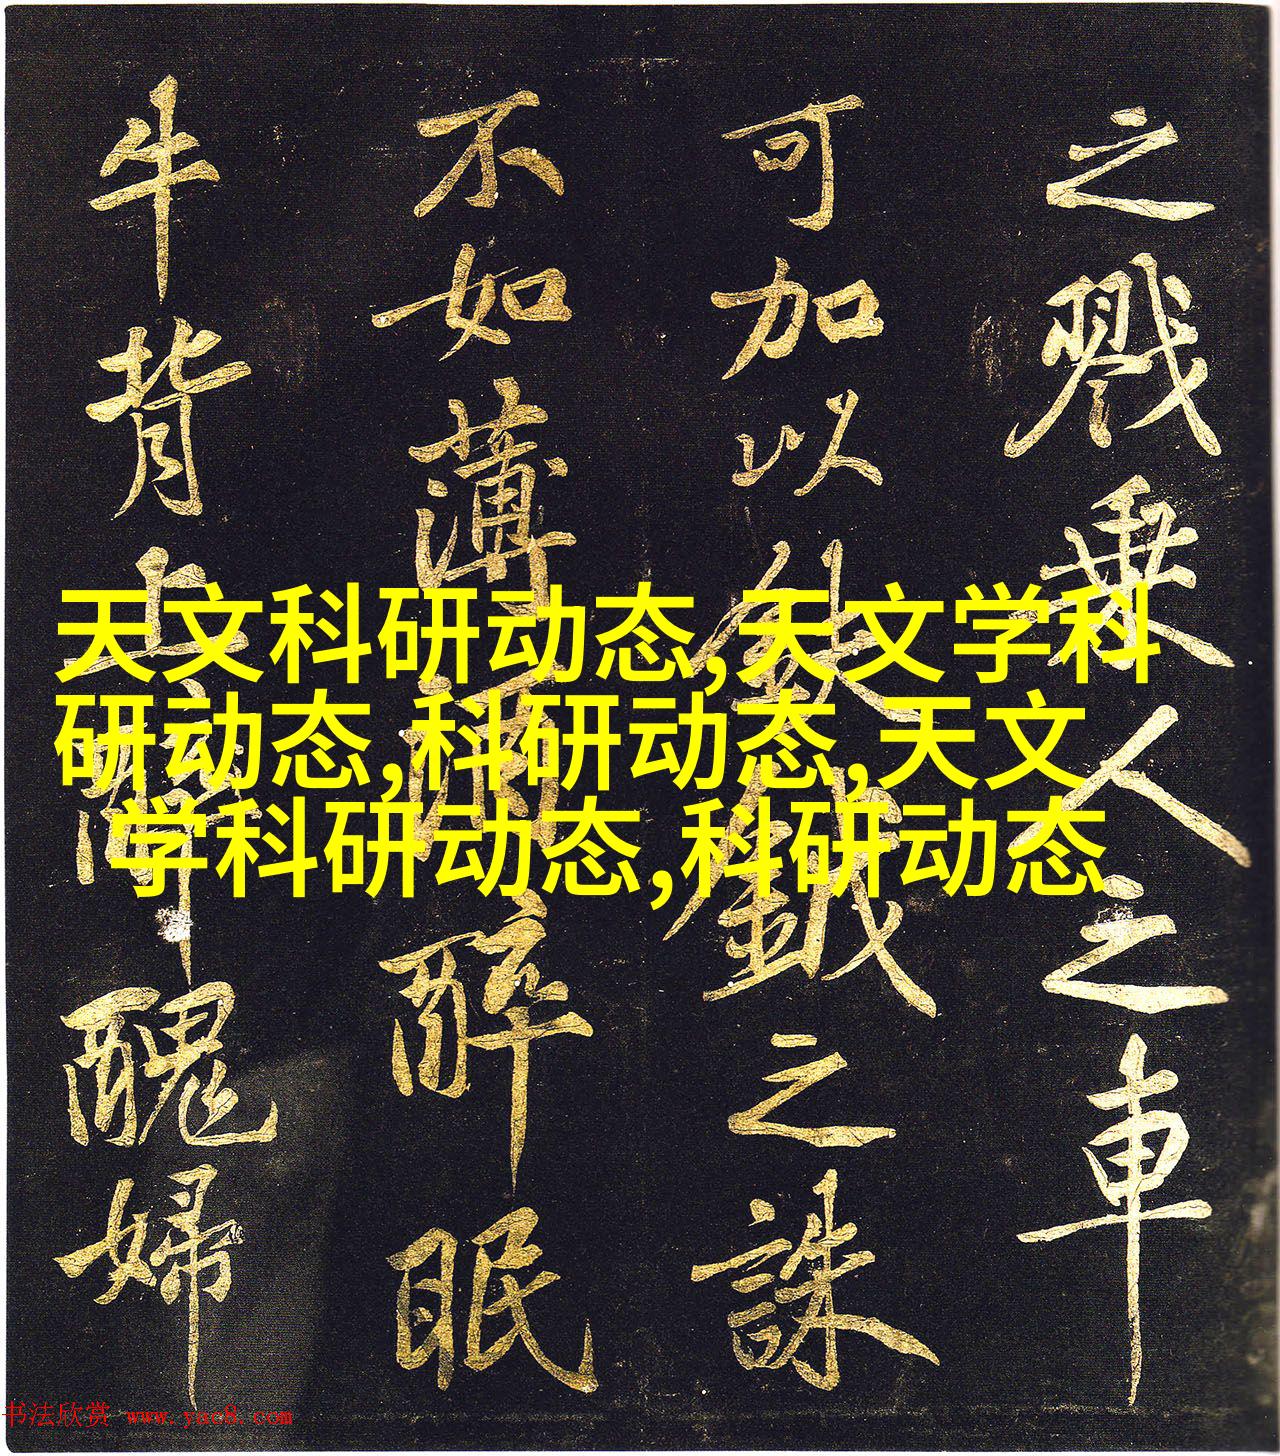 之戮乘人之車
可加以鈇鉞之誅
不如薄酒醉眠
牛背上醜婦
天文科研动态,天文学科
研动态,科研动态,天文
学科研动态,科研动态
书法欣赏 www.yac8.com